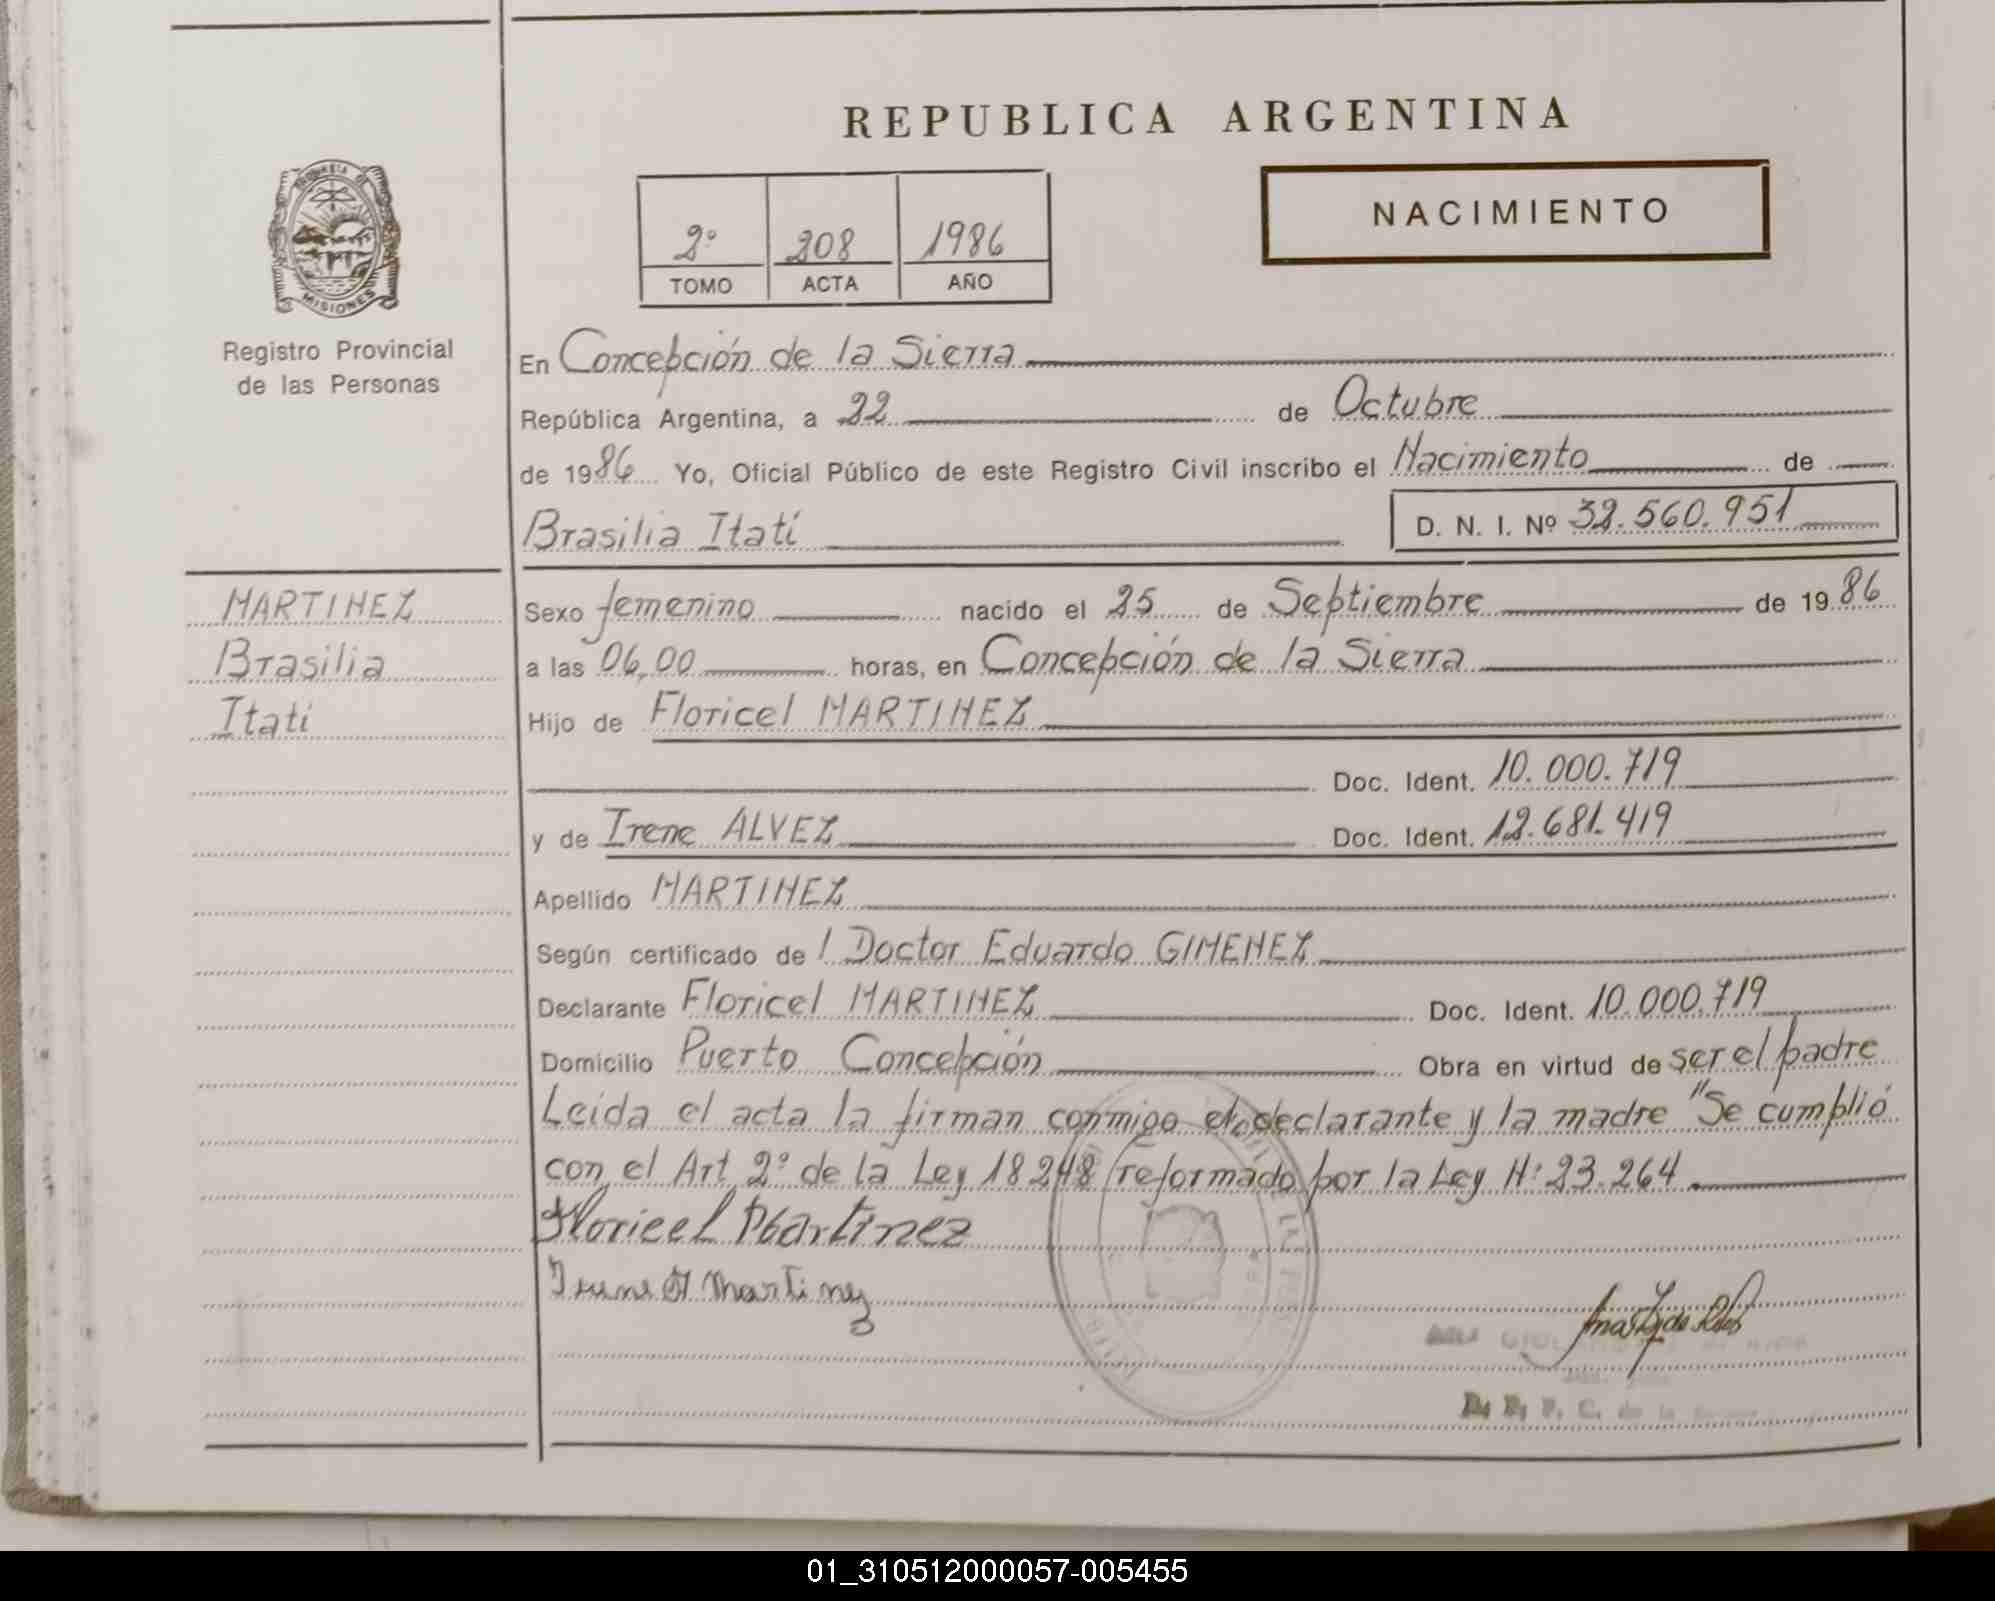 REPUBLICA ARGENTINA
PROVINCIA DE
MISIONES
Registro Provincial
de las Personas
2º 208 1986
TOMO ACTA AÑO
NACIMIENTO
En Concepción de la Sierra
República Argentina, a 22 de Octubre
de 1986 Yo, Oficial Público de este Registro Civil inscribo el Nacimiento de
Brasilia Itatí D. N. I. Nº 32.560.951
MARTINEZ
Brasilia
Itatí
Sexo femenino nacido el 25 de Septiembre de 1986
a las 06,00 horas, en Concepción de la Sierra
Hijo de Floricel MARTINEZ
Doc. Ident. 10.000.719
y de Irene ALVEZ Doc. Ident. 12.681.419
Apellido MARTINEZ
Según certificado de l Doctor Eduardo GIMENEZ
Declarante Floricel MARTINEZ Doc. Ident. 10.000.719
Domicilio Puerto Concepción Obra en virtud de ser el padre
Leída el acta la firman conmigo el declarante y la madre "Se cumplió
con el Art 2º de la Ley 18248 reformado por la Ley Nº 23.264.
Floricel Martinez
Irene A Martinez
de la
01_310512000057-005455